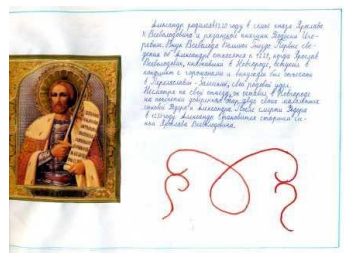 Александр родился в 1220 году в семье князя Ярослава
Всеволодовича и рязанской княжны Феодосии Иго-
ревны. Внук Всеволода Большое Гнездо. Первые све-
дения об Александре относятся к 1228, когда Ярослав
Всеволодович, княживший в Новгороде, вступил в
конфликт с горожанами и вынужден был отъехать
в Переяславль-Залесский, свой родовой удел.
Несмотря на свой отъезд, он оставил в Новгороде
на попечении доверенных бояр двух своих малолетних
сыновей Фёдора и Александра. После смерти Фёдора
в 1233 году Александр становится старшим сы-
ном Ярослава Всеволодовича.